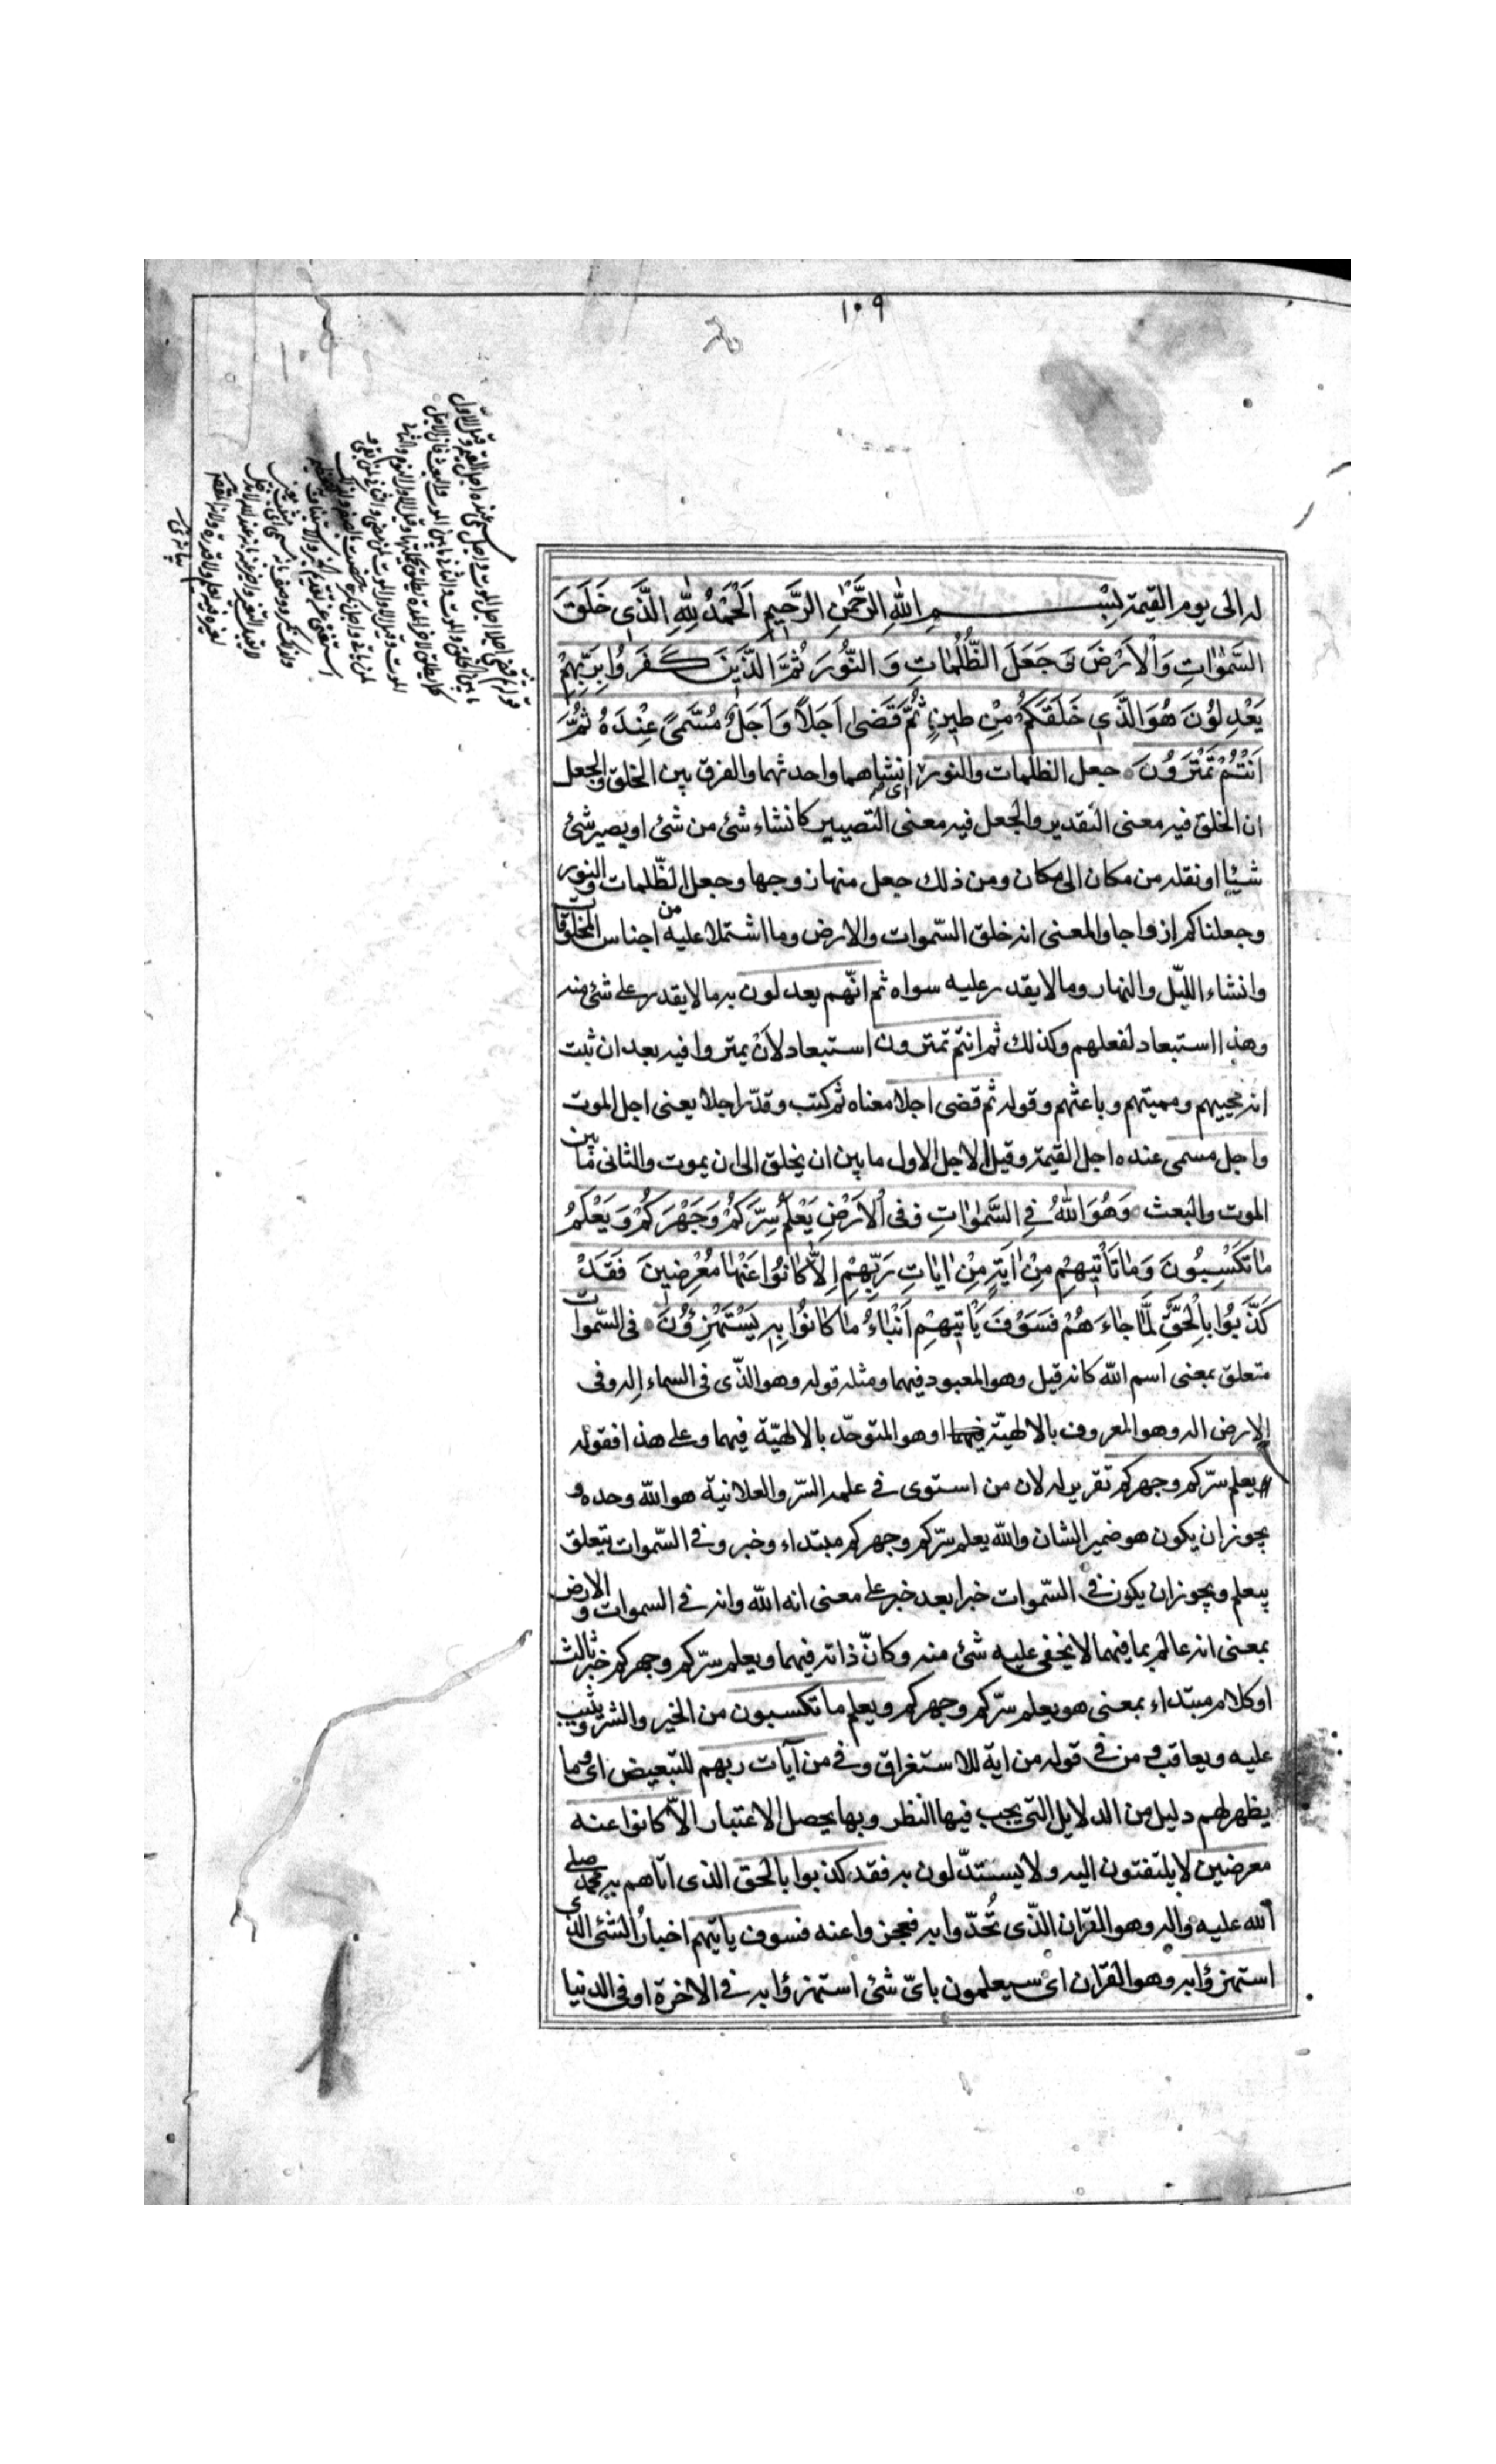 ١٠٩
له الى يوم القيمة بِسْمِ اللهِ الرَّحْمٰنِ الرَّحِيمِ اَلْحَمْدُ لِلّٰهِ الَّذِي خَلَقَ
السَّمٰوَاتِ وَالْاَرْضَ وَ جَعَلَ الظُّلُمَاتِ وَ النُّورَ ثُمَّ الَّذِينَ كَفَرُوا بِرَبِّهِمْ
يَعْدِلُونَ هُوَ الَّذِي خَلَقَكُمْ مِنْ طِينٍ ثُمَّ قَضٰى اَجَلًا وَ اَجَلٌ مُسَمًّى عِنْدَهُ ثُمَّ
اَنْتُمْ تَمْتَرُونَ جعل الظلمات والنور اى انشاهما واحدثهما والفرق بين الخلق والجعل
ان الخلق فيه معنى التقدير والجعل فيه معنى التصيير كانشاء شئ من شئ او يصير شئ
شيئا او نقله من مكان الى مكان ومن ذلك جعل منها زوجها وجعل الظّلمات والنور
وجعلناكم ازواجا والمعنى انه خلق السّموات والارض وما اشتملا عليه من اجناس المخلوقات
وانشاء الليّل والنهار وما لا يقدر عليه سواه ثم انّهم يعدلون به ما لا يقدر على شئ منه
وهذا استبعاد لفعلهم وكذلك ثم انتم تمترون استبعاد لاَنْ يمتروا فيه بعد ان ثبت
انه محييهم ومميتهم وباعثهم وقوله ثم قضى اجلا معناه ثم كتب وقدّر اجلا يعنى اجل الموت
واجل مسمى عنده اجل القيمة وقيل الاجل الاول ما بين ان يخلق الى ان يموت والثانى ما بين
الموت والبعث وَهُوَ اللهُ فِي السَّمٰوَاتِ وَفِى الْاَرْضِ يَعْلَمُ سِرَّكُمْ وَجَهْرَكُمْ وَ يَعْلَمُ
مٰا تَكْسِبُونَ وَ مٰا تَأْتِيهِمْ مِنْ اٰيَةٍ مِنْ اٰيٰاتِ رَبِّهِمْ اِلاَّ كٰانُوا عَنْهٰا مُعْرِضِينَ فَقَدْ
كَذَّبُوا بِالْحَقِّ لَمَّا جٰاءَهُمْ فَسَوْفَ يَاْتِيهِمْ اَنْبٰاءُ مٰا كٰانُوا بِهِ يَسْتَهْزِؤُنَ فى السّموات
متعلق بمعنى اسم اللّه كانه قيل وهو المعبود فيهما ومثله قوله وهو الذّى فى السماء اِله وفى
الارض اله وهو المعروف بالالهيّة او هو المتوحّد بالالهيّة فيهما وعلى هذا فقوله
يعلم سرّكم وجهركم تقرير له لان من استوى فى علمه السّر والعلانية هو اللّه وحده و
يجوز ان يكون هو ضمير الشان واللّه يعلم سرّكم وجهركم مبتداء وخبر وفى السّموات يتعلق
بيعلم ويجوز ان يكون فى السّموات خبرا بعد خبر على معنى انه اللّه وانه فى السموات والارض
بمعنى انه عالم بما فيهما لا يخفى عليه شئ منه وكانّ ذاته فيهما ويعلم سرّكم وجهركم خبر ثالث
او كلام مبتداء بمعنى هو يعلم سرّكم وجهركم ويعلم ما تكسبون من الخير والشر ويثيب
عليه ويعاقب و من فى قوله من اية للاستغراق وفى من آيات ربهم للتبعيض اى وما
يظهر لهم دليل من الدلايل التى يجب فيها النظر وبها يحصل الاعتبار الّا كانوا عنه
معرضين لا يلتفتون اليه ولا يستدّلون به فقد كذبوا بالحق الذى اتاهم به محمد صلى
اللّه عليه واله وهو القران الذّى تُحدّوا به فعجزوا عنه فسوف ياتيهم اخبارُ الشئ الذى
استهزؤا به وهو القران اى سيعلمون باىّ شئ استهزؤا به فى الاخرة او فى الدنيا